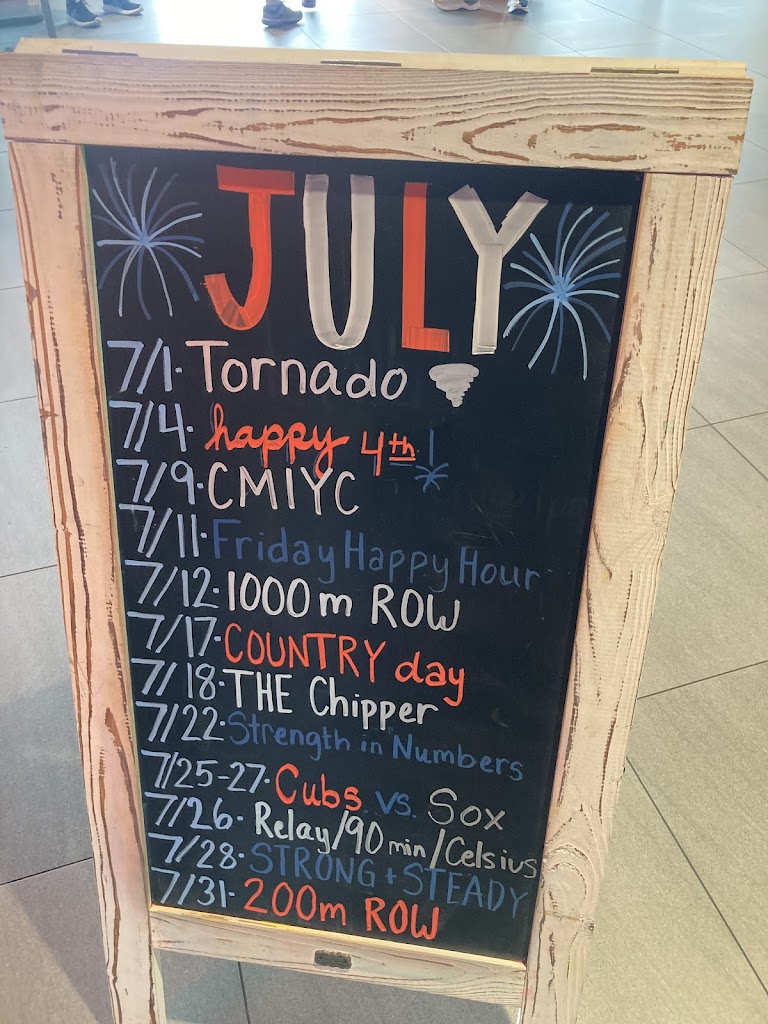 JULY
7/1. Tornado
7/4. happy 4th!
7/9. CMIYC
7/11. Friday Happy Hour
7/12. 1000m ROW
7/17. COUNTRY day
7/18. THE Chipper
7/22. Strength in Numbers
7/25-27. Cubs vs. Sox
7/26. Relay/90 min/Celsius
7/28. STRONG + STEADY
7/31. 200m ROW